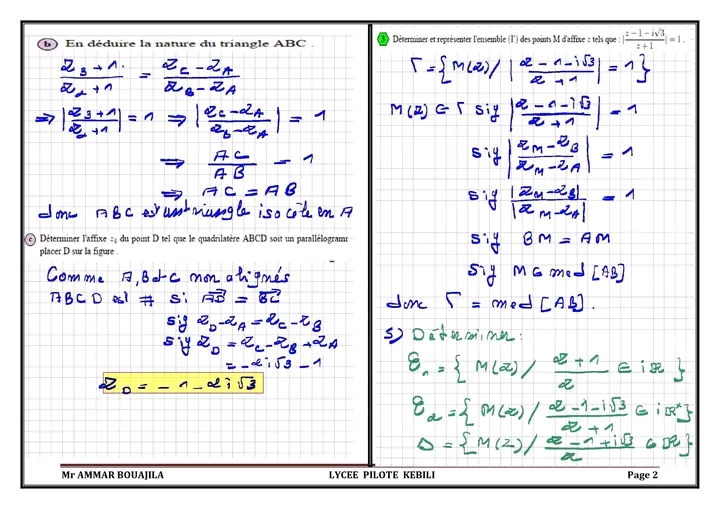 b En déduire la nature du triangle ABC .
(z₃ + 1)/(z₂ + 1) = (z_C - z_A)/(z_B - z_A)
=> |(z₃ + 1)/(z₂ + 1)| = 1 => |(z_C - z_A)/(z_B - z_A)| = 1
=> AC/AB = 1
=> AC = AB
donc ABC est un triangle isocèle en A
c Déterminer l'affixe z₄ du point D tel que le quadrilatère ABCD soit un parallélogramme
placer D sur la figure .
Comme A, B et C non alignés
ABCD est # si AD = BC
sig z_D - z_A = z_C - z_B
sig z_D = z_C - z_B + z_A
= -2i√3 - 1
z_D = -1 - 2i√3
3 Déterminer et représenter l'ensemble (Γ) des points M d'affixe z tels que : |(z-1-i√3)/(z+1)| = 1 .
Γ = { M(z) / |(z - 1 - i√3)/(z + 1)| = 1 }
M(z) ∈ Γ sig |(z - 1 - i√3)/(z + 1)| = 1
sig |(z_M - z_B)/(z_M - z_A)| = 1
sig |z_M - z_B|/|z_M - z_A| = 1
sig BM = AM
sig M ∈ med [AB]
donc Γ = med [AB] .
5) Déterminer :
E₁ = { M(z) / (z + 1)/z ∈ iℝ }
E₂ = { M(z) / (z - 1 - i√3)/(z + 1) ∈ iℝ* }
D = { M(z) / (z - 1 + i√3)/z ∈ ℝ }
Mr AMMAR BOUAJILA LYCEE PILOTE KEBILI Page 2